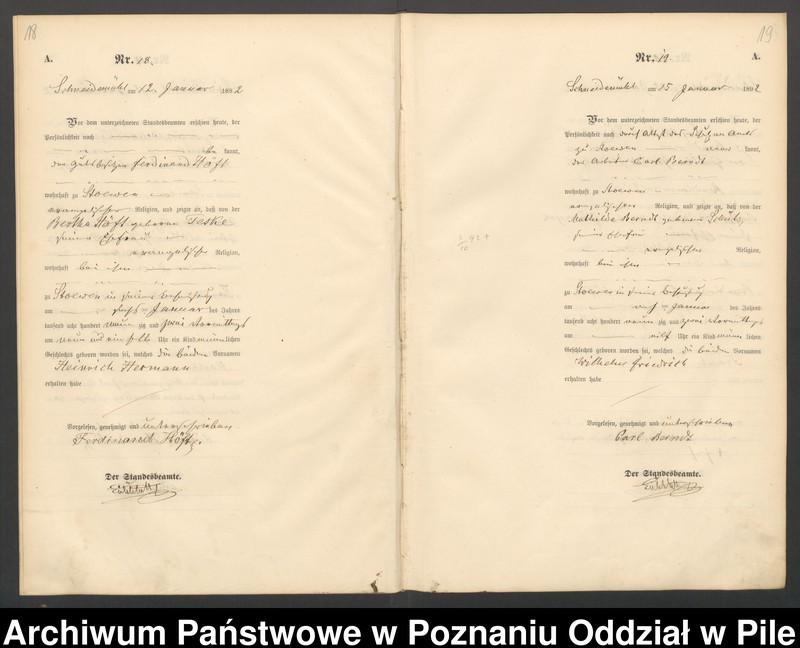 18
A.
Nr. 18.
Schneidemühl am 12. Januar 1892
Vor dem unterzeichneten Standesbeamten erschien heute, der
Persönlichkeit nach
be kannt,
der Gutsbesitzer Ferdinand Höft
wohnhaft zu Stoewen
evangelischer Religion, und zeigte an, daß von der
Bertha Höft geborene Teske
seiner Ehefrau
evangelischer Religion,
wohnhaft bei ihm
zu Stoewen in seiner Behausung
am Januar des Jahres
tausend acht hundert neun zig und zwei Vormittags
um neun und Uhr ein Kind männlichen
Geschlechts geboren worden sei, welches die beiden Vornamen
Heinrich Hermann
erhalten habe
Vorgelesen, genehmigt und unterschrieben
Ferdinand Höft.
Der Standesbeamte.
19
Nr. 19
A.
Schneidemühl am 15 Januar 1892
Vor dem unterzeichneten Standesbeamten erschien heute, der
Persönlichkeit nach durch Attest des Amts
zu Stoewen kannt,
der Arbeiter Carl Berndt
wohnhaft zu Stoewen
evangelischer Religion, und zeigte an, daß von der
Mathilde Berndt geborenen
seiner Ehefrau
evangelischer Religion,
wohnhaft bei ihm
zu Stoewen in seiner Behausung
am Januar des Jahres
tausend acht hundert neun zig und zwei Vormittags
um elf Uhr ein Kind männ lichen
Geschlechts geboren worden sei, welches die beiden Vornamen
Wilhelm Friedrich
erhalten habe
Vorgelesen, genehmigt und unterschrieben
Carl Berndt
Der Standesbeamte.
Archiwum Państwowe w Poznaniu Oddział w Pile